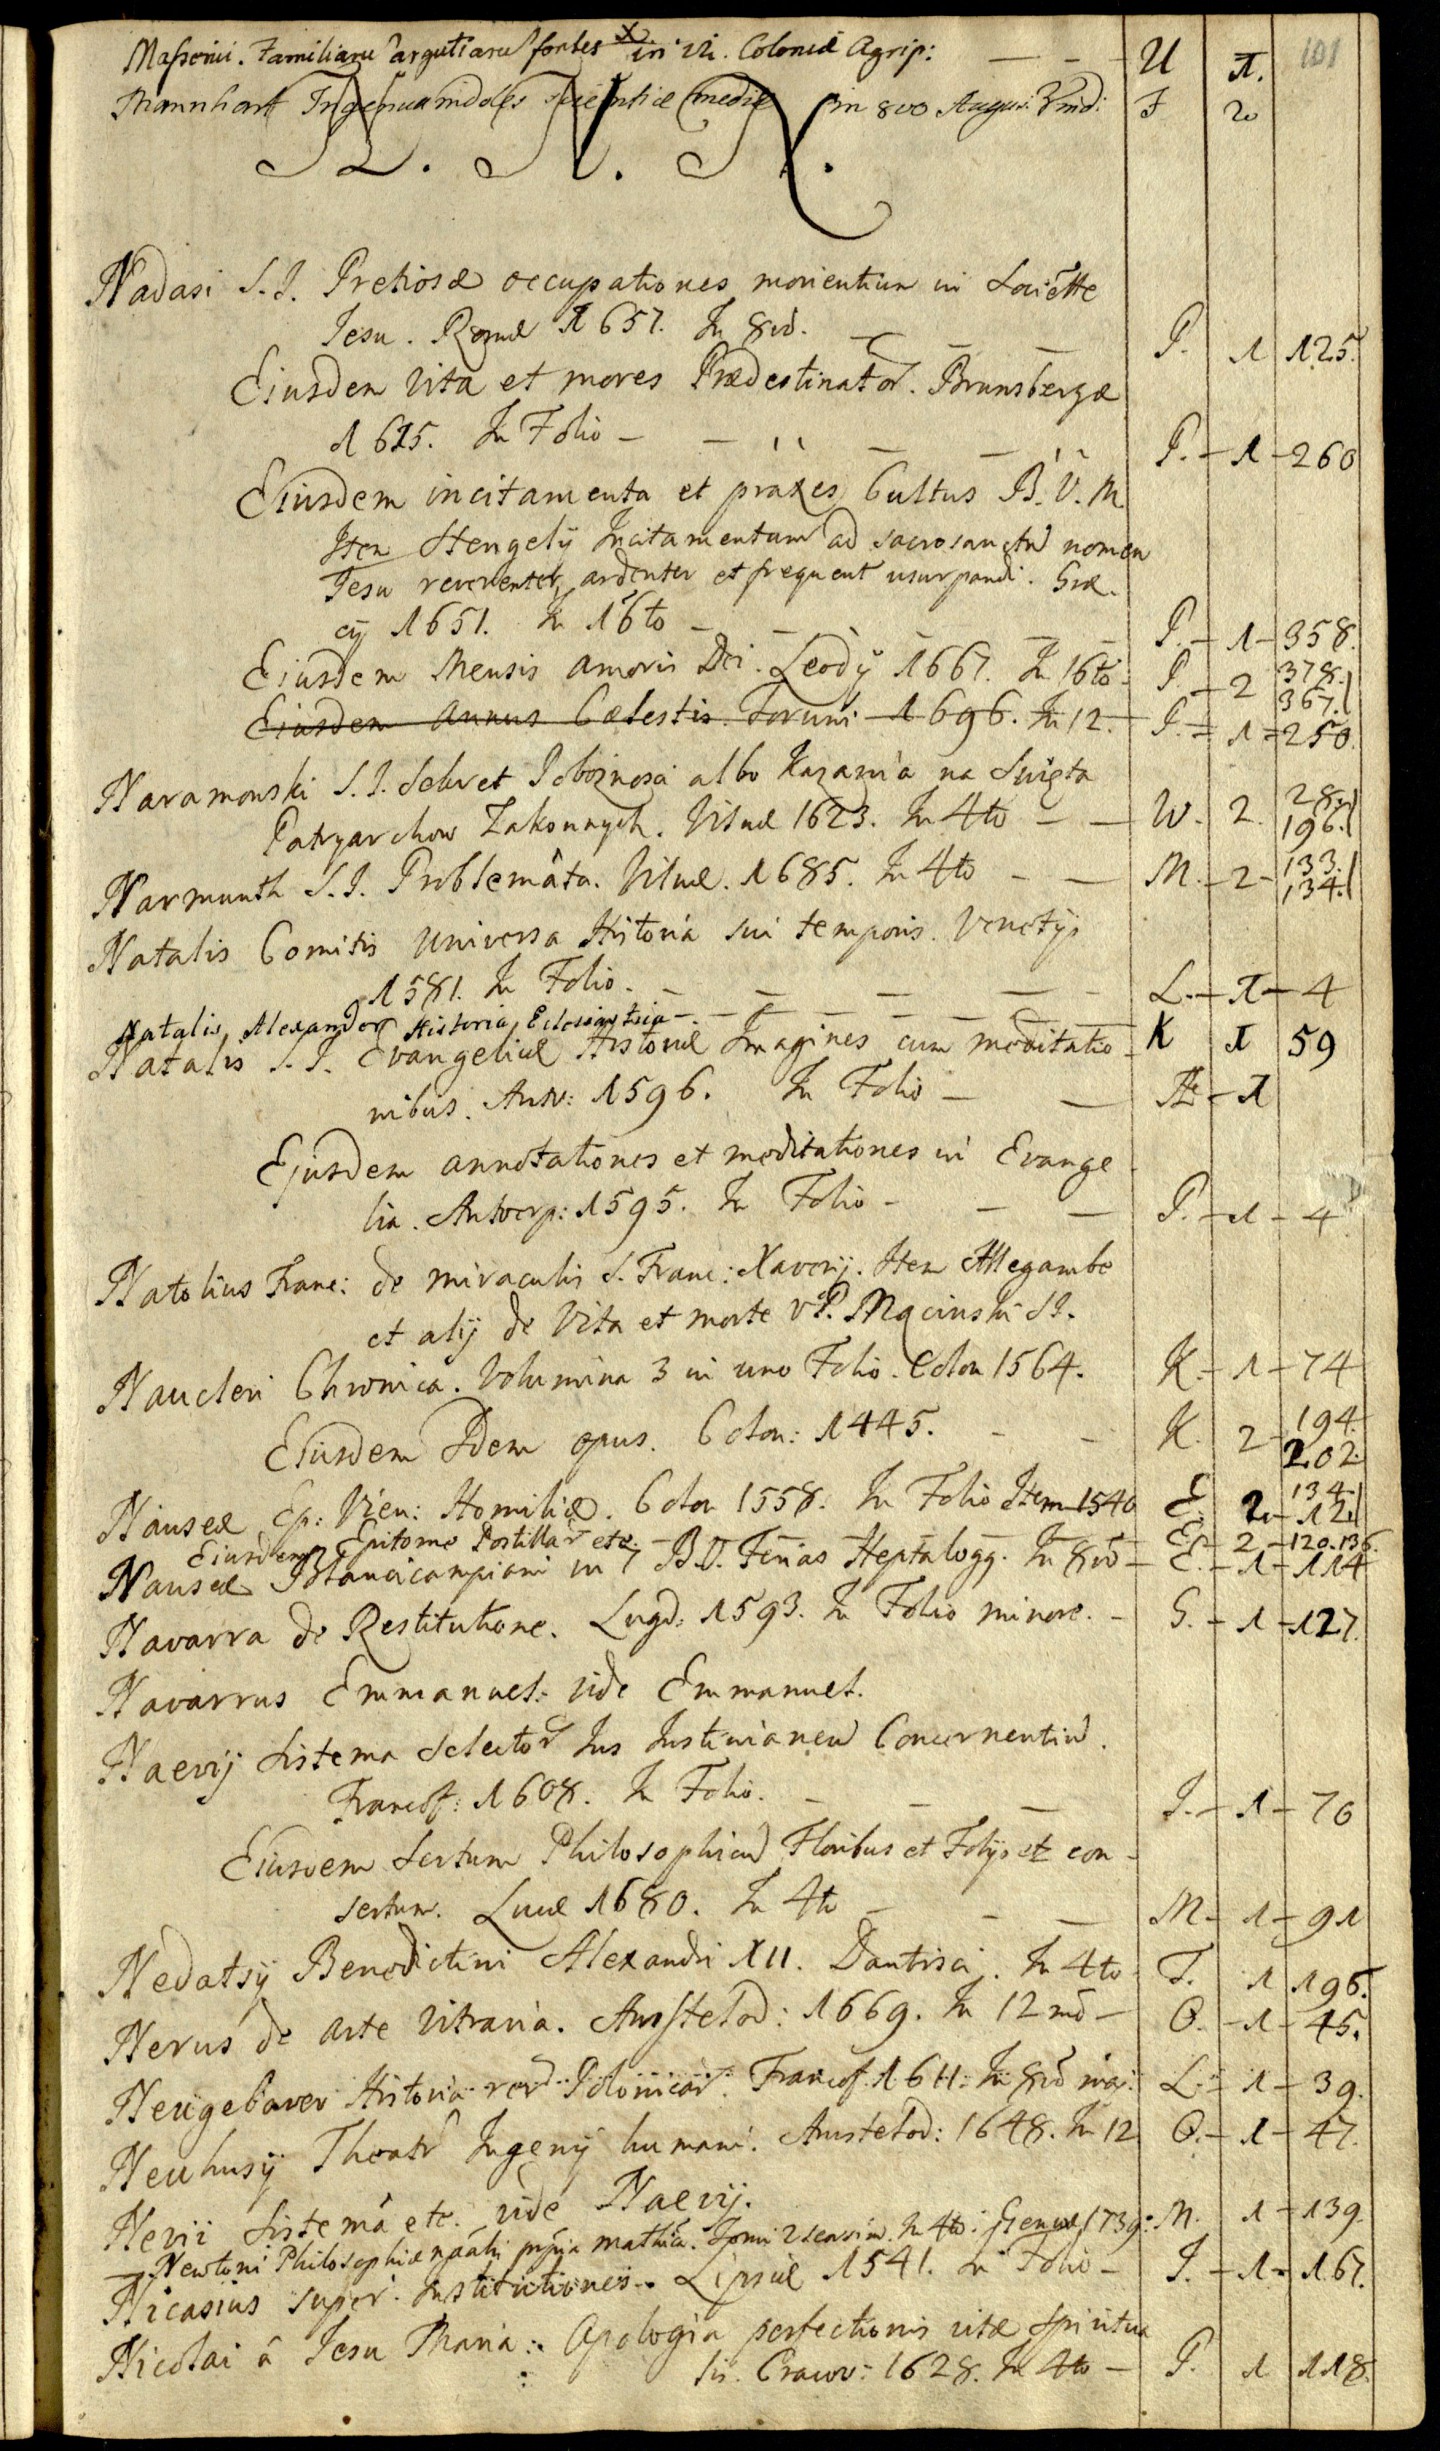 101
Massenii. Familiaru argutiaru fontes in 12. Coloniæ Agrip: — — U 1.
Mannhart Ingenua indoles scientiæ mediæ in 8vo August: Vind: F 2
N. N. N.
Nadasi S.J. Pretiosæ occupationes morientium in Societte
Jesu. Romæ 1657. In 8vo. — — — P. 1 125.
Eiusdem Vita et mores Prædestinator. Brunsbergæ
1625. In Folio — — — — P. — 1 — 260
Eiusdem incitamenta et praxes Cultus B.V.M.
Item Stengelij Incitamentum ad sacrosanctu nomen
Jesu reverenter, ardenter et frequent usurpandi. Græ-
cij 1651. In 16to — — — — P. — 1 — 358.
Eiusdem Mensis amoris Dei. Leodij 1667. In 16to. P. — 2 378. 367.
Eiusdem Annus Cælestis. Toruni 1696. In 12. P. = 1 = 250.
Naramowski S.J. Sekret Pobożnosci albo Kazania na Swięta
Patryarchow Zakonnych. Vilnæ 1623. In 4to — — W. 2. 28. 196.
Narmunth S.J. Problemâta. Vilnæ. 1685. In 4to — — M. — 2 — 133. 134.
Natalis Comitis Universa Historia sui temporis. Venetijs
1581. In Folio. — — — — L. — 1 — 4
Natalis Alexander Historia Eclesiastica — — — — K 1 59
Natalis S.J. Evangelicæ Historiæ Imagines cum meditatio-
nibus. Antv: 1596. In Folio — — Æ — 1
Ejusdem annotationes et meditationes in Evange-
lia. Antverp: 1595. In Folio — — — P. — 1 — 4
Natolius Franc: de miraculis S. Franc: Xaverij. Item Allegambe
et alij de Vita et morte V.P. Męcinski S.J.
K. — 1 — 74
Naucleri Chronica. Volumina 3 in uno Folio. Colon 1564.
K. 2 — 194. 202.
Eiusdem Idem opus. Colon: 1445. — —
Nauseæ Ep: Vien: Homiliæ. Colon 1558. In Folio Item 1540 E. 2. — 134. 12.
Eiusdem Epitome Postillar etc. — — — E. — 2 — 120. 136.
Nauseæ in 7 B.V. Ferias Heptalogg. In 8vo — E. — 1 — 114
Navarra de Restitutione. Lugd: 1593. In Folio minore. — G. — 1 — 127.
Navarrus Emmanuel: vide Emmanuel.
Naevij Sistema Selector Jus Justinianeu Concernentiu.
Francof: 1608. In Folio. — — — J. — 1 — 76
Eiusdem Sertum Philosophicu Floribus et Folijs et con-
sertum. Lucæ 1680. In 4to — — — M. — 1 — 91
Nedatsij Benedictini Alexandri XII. Dantisci. In 4to T. 1 196.
Nerus de arte Vitraria. Amstelod: 1669. In 12mo — O. — 1 — 45.
Neugebaver Historia reru Polonicar. Francof. 1611. In 8vo maj: L. = 1 — 39.
Neuhusij Theatr Ingenij humani. Amstelod: 1648. In 12 O. — 1 — 47.
Nevii Sistema etc. vide Naevij.
Newtoni Philosophiæ nâalis prpia mathca. Tomi 2 In 4to: Genevæ 1739: M. 1 — 139.
Nicasius super Institutiones. Lipsiæ 1541. In Folio — J. — 1 — 167.
Nicolai â Jesu Maria: Apologia perfectionis vitæ Spiritua
lis. Cracov: 1628. In 4to — P. 1 118.